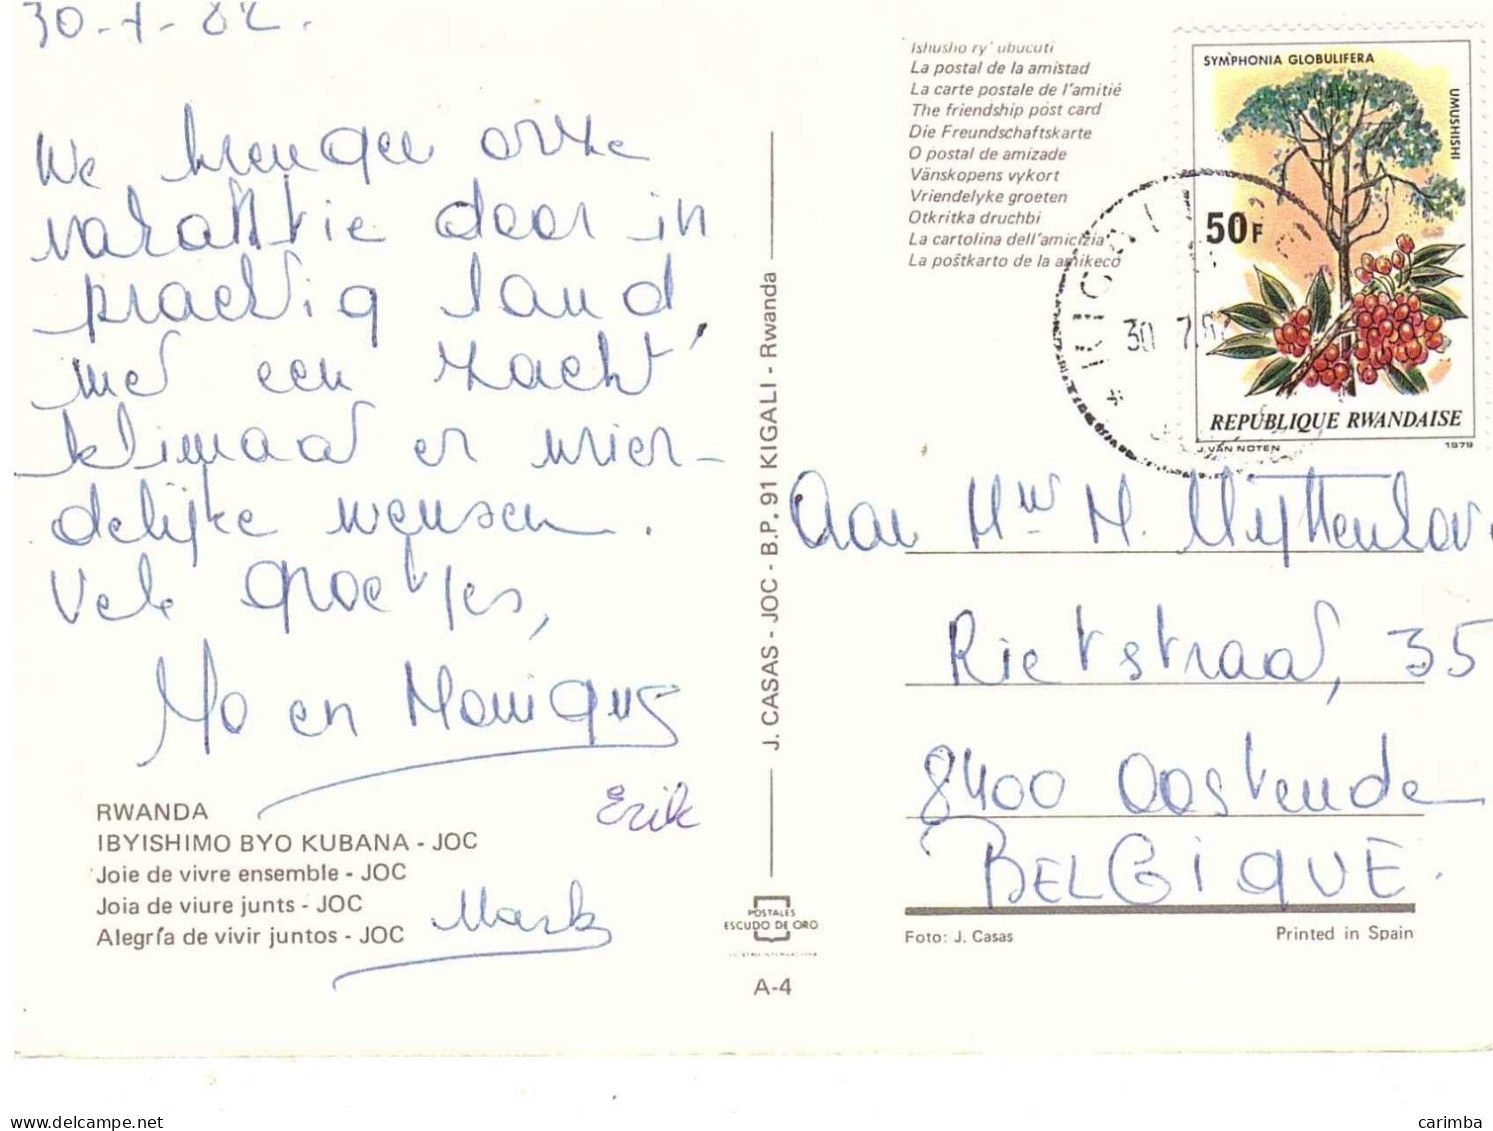 30-7-82.
We brengen onze
vakantie door in
prachtig land,
met een zacht
klimaat en vrien-
delijke mensen.
Vele groetjes,
Mo en Monique
Erik
Mark
RWANDA
IBYISHIMO BYO KUBANA - JOC
Joie de vivre ensemble - JOC
Joia de viure junts - JOC
Alegría de vivir juntos - JOC
J. CASAS - JOC - B.P. 91 KIGALI - Rwanda
POSTALES
ESCUDO DE ORO
A-4
Ishusho ry' ubucuti
La postal de la amistad
La carte postale de l'amitié
The friendship post card
Die Freundschaftskarte
O postal de amizade
Vänskopens vykort
Vriendelyke groeten
Otkritka druchbi
La cartolina dell'amicizia
La poŝtkarto de la amikeco
SYMPHONIA GLOBULIFERA
UMUSHISHI
50F
REPUBLIQUE RWANDAISE
J. VAN NOTEN 1979
* KIGALI
30 7.82
Aan Mw M.
Rietstraat, 35
8400 Oostende
BELGIQUE.
Foto: J. Casas
Printed in Spain
carimba